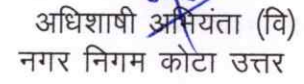 अधिशाषी अभियंता (वि)
नगर निगम कोटा उत्तर